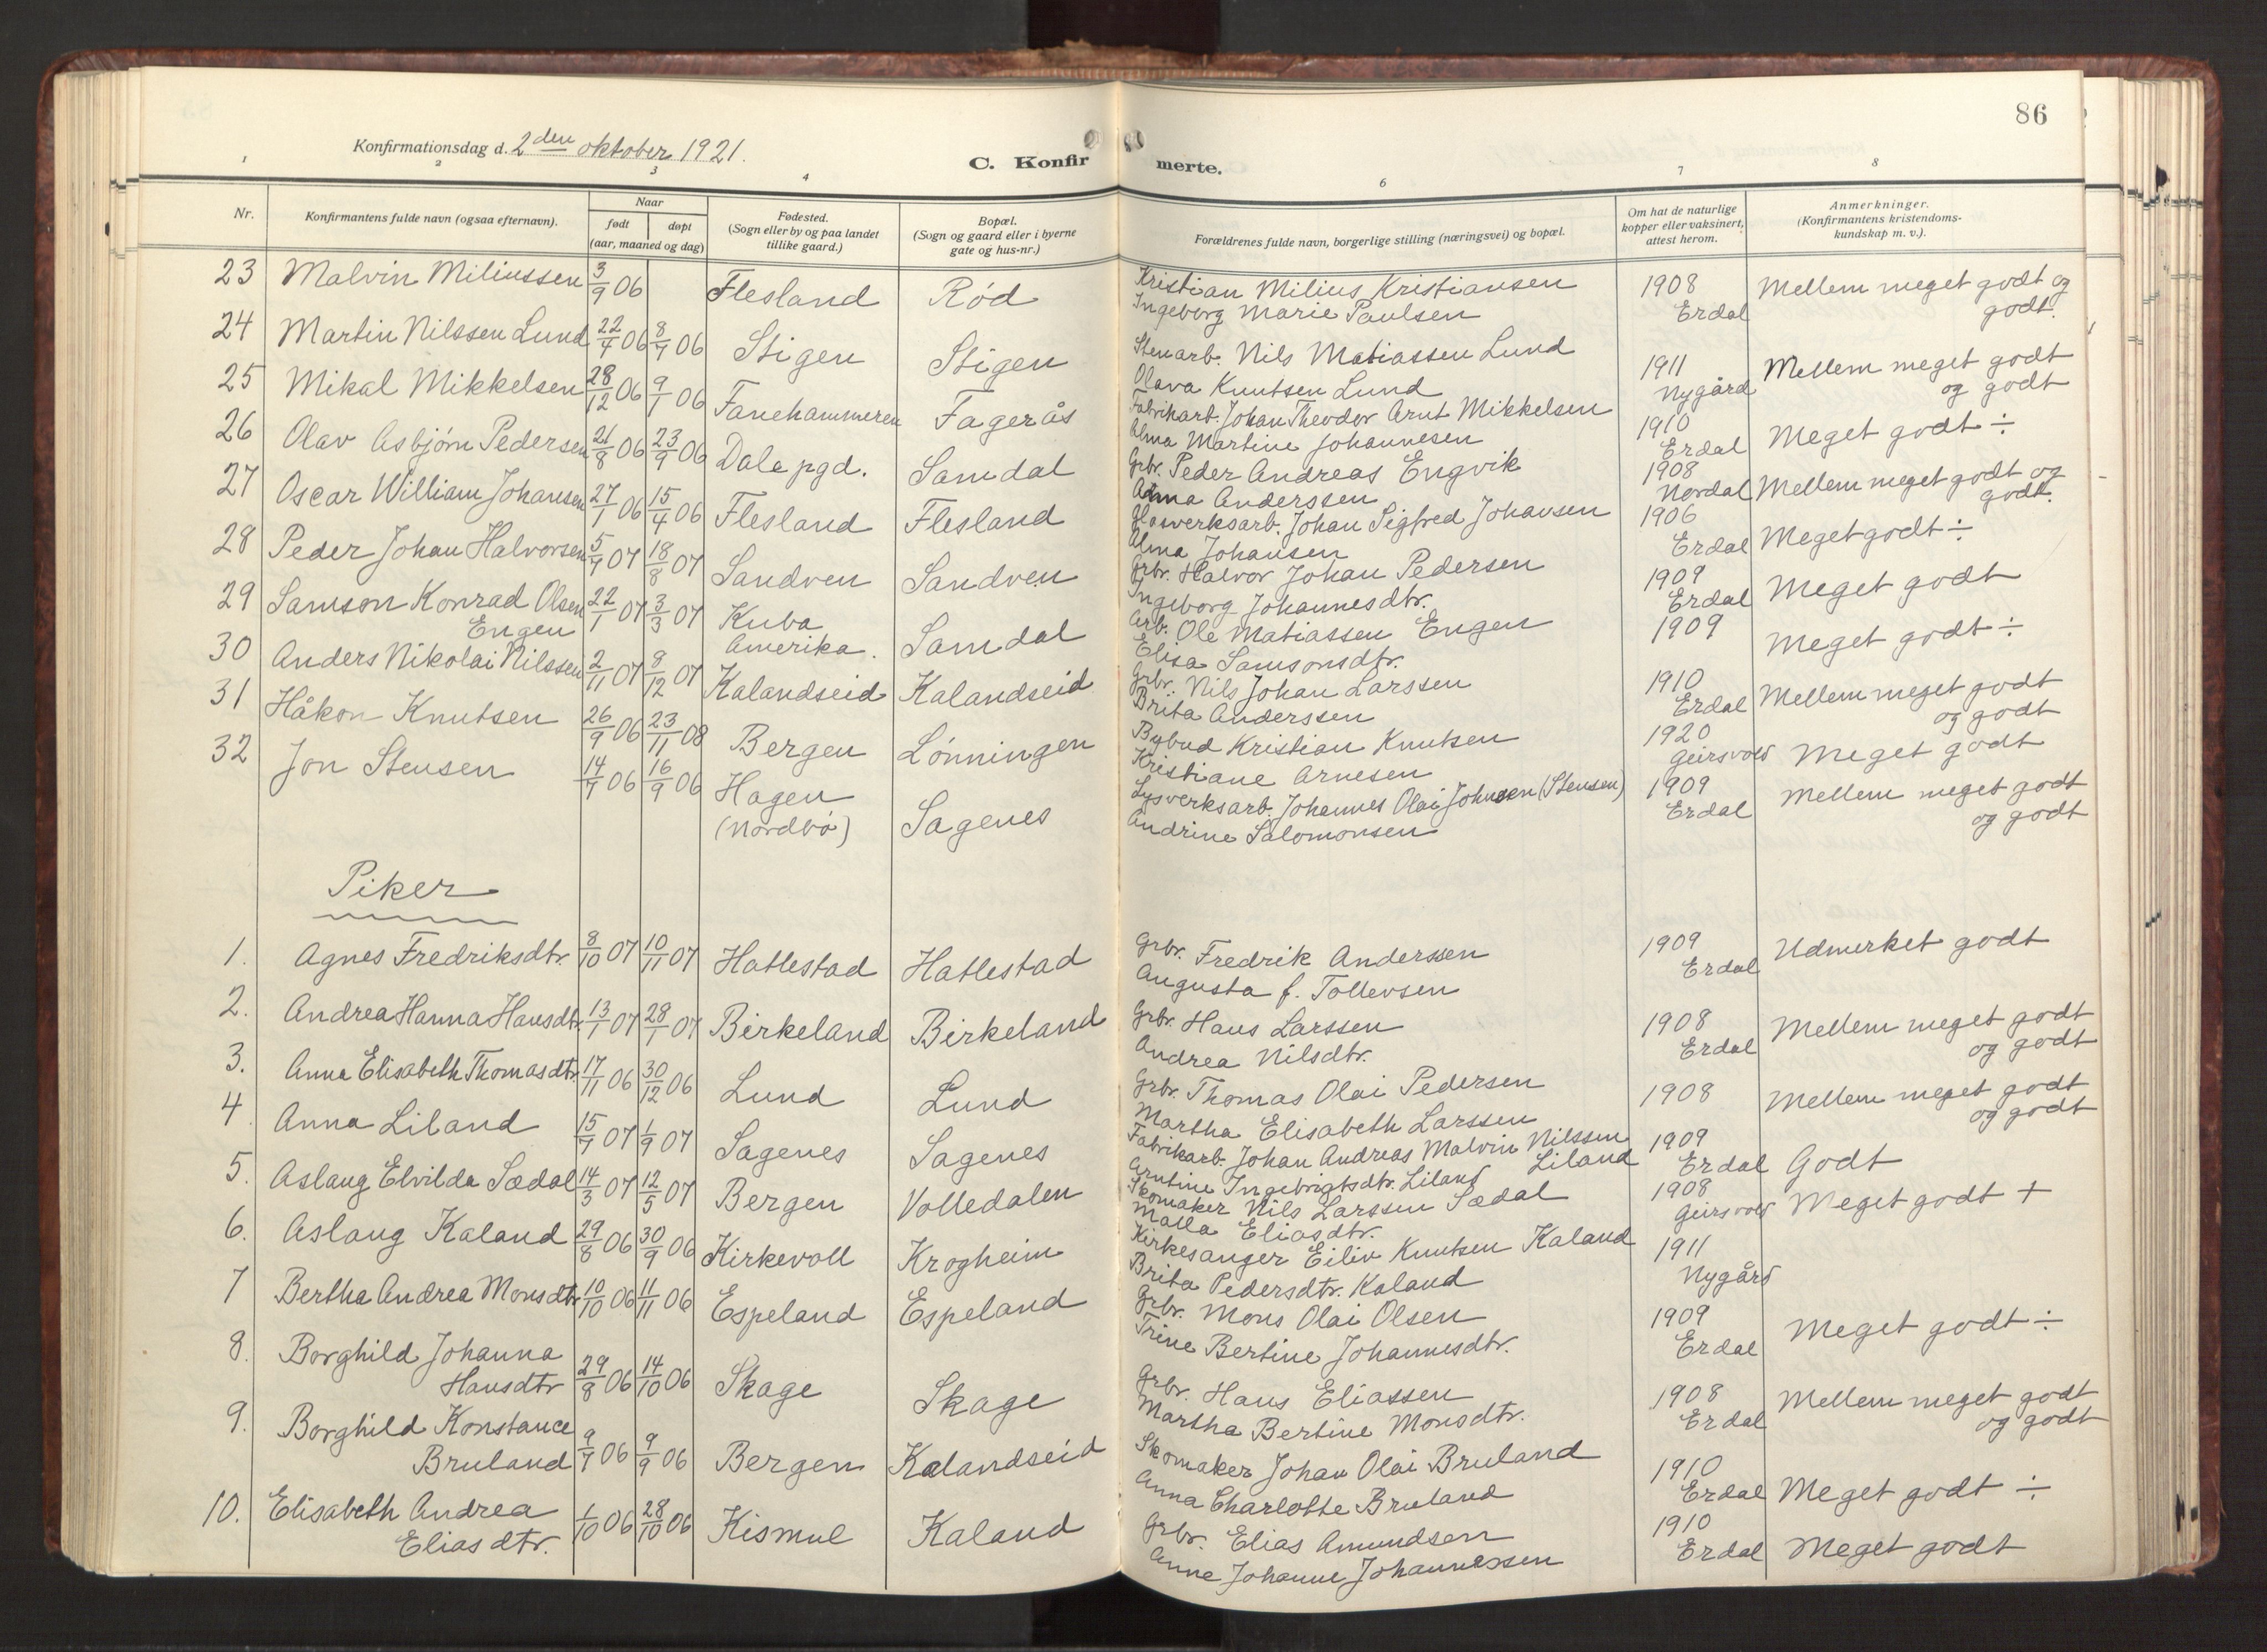 86
Konfirmationsdag d. 2den oktober 1921.
C. Konfirmerte.
1 2 3 4 6 7 8
Nr. Konfirmantens fulde navn (ogsaa efternavn). Naar født døpt (aar, maaned og dag) Fødested. (Sogn eller by og paa landet tillike gaard.) Bopæl. (Sogn og gaard eller i byerne gate og hus-nr.) Forældrenes fulde navn, borgerlige stilling (næringsvei) og bopæl. Om hat de naturlige kopper eller vaksinert, attest herom. Anmerkninger. (Konfirmantens kristendoms-kundskap m. v.).
23 Malvin Miliussen 3/9 06 Flesland Rød Kristian Milius Kristiansen 1908 Mellem meget godt og
Ingeborg Marie Paulsen Erdal godt.
24 Martin Nilssen Lund 22/4 06 8/7 06 Stigen Stigen Stenarb. Nils Matiassen Lund 1911 Mellem meget godt
Olava Knutsen Lund Nygård og godt
25 Mikal Mikkelsen 28/12 06 9/1 06 Fanehammeren Fagerås Fabrikarb. Johan Theodor Arnt Mikkelsen 1910 Meget godt ÷
Alma Martine Johannesen Erdal
26 Olav Asbjørn Pedersen 21/8 06 23/9 06 Dale pgd. Samdal Grbr. Peder Andreas Engvik 1908 Mellem meget godt og
Anna Anderssen Nordal godt.
27 Oscar William Johansen 27/1 06 15/4 06 Flesland Flesland Glasverksarb. Johan Sigfred Johansen 1906 Meget godt ÷
Alma Johansen Erdal
28 Peder Johan Halvorsen 5/7 07 18/8 07 Sandven Sandven Grbr. Halvor Johan Pedersen 1909 Meget godt
Ingeborg Johannesdtr. Erdal
29 Samson Konrad Olsen 22/1 07 3/3 07 Kuba Samdal Arb. Ole Matiassen Engen 1909 Meget godt ÷
Engen Amerika. Elisa Samsonsdtr.
30 Anders Nikolai Nilssen 2/11 07 8/12 07 Kalandseid Kalandseid Grbr. Nils Johan Larssen 1910 Mellem meget godt
Brita Anderssen Erdal og godt
31 Håkon Knutsen 26/9 06 23/11 08 Bergen Lønningen Bybud Kristian Knutsen 1920 Meget godt
Kristiane Arnesen Geirsvold
32 Jon Stensen 14/7 06 16/9 06 Hagen Sagenes Lysverksarb. Johannes Olai Johnsen (Stensen) 1909 Mellem meget godt
(Nordbø) Andrine Salomonsen Erdal og godt
Piker
1. Agnes Fredriksdtr. 8/10 07 10/11 07 Hatlestad Hatlestad Grbr. Fredrik Anderssen 1909 Udmerket godt
Augusta f. Tollevsen Erdal
2. Andrea Hanna Hansdtr. 13/1 07 28/1 07 Birkeland Birkeland Grbr. Hans Larssen 1908 Mellem meget godt
Andrea Nilsdtr. Erdal og godt
3. Anna Elisabeth Thomasdtr. 17/11 06 30/12 06 Lund Lund Grbr. Thomas Olai Pedersen 1908 Mellem meget godt
Martha Elisabeth Larssen og godt
4. Anna Liland 15/7 07 1/9 07 Sagenes Sagenes Fabrikarb. Johan Andreas Malvin Nilssen Liland 1909 Godt
Arntine Ingebrigtsdtr. Liland Erdal
5. Aslaug Elvilda Sædal 14/3 07 12/5 07 Bergen Volledalen Skomaker Nils Larssen Sædal 1908 Meget godt +
Malla Eliasdtr. Geirsvold
6. Aslaug Kaland 29/8 06 30/9 06 Kirkevoll Krogheim Kirkesanger Eiliv Knutsen Kaland 1911
Brita Pedersdtr. Kaland Nygård
7 Bertha Andrea Monsdtr 10/10 06 11/11 06 Espeland Espeland Grbr. Mons Olai Olsen 1909 Meget godt ÷
Trine Bertine Johannesdtr. Erdal
8. Borghild Johanna 29/8 06 14/10 06 Skage Skage Grbr. Hans Eliassen 1908 Mellem meget godt
Hansdtr Martha Bertine Monsdtr. Erdal og godt
9. Borghild Konstance 9/7 06 9/9 06 Bergen Kalandseid Skomaker Johan Olai Bruland 1910 Meget godt ÷
Bruland Anna Charlotte Bruland Erdal
10. Elisabeth Andrea 1/10 06 28/10 06 Kismul Kaland Grbr. Elias Amundsen 1910 Meget godt
Eliasdtr. Anne Johanne Johannessen Erdal